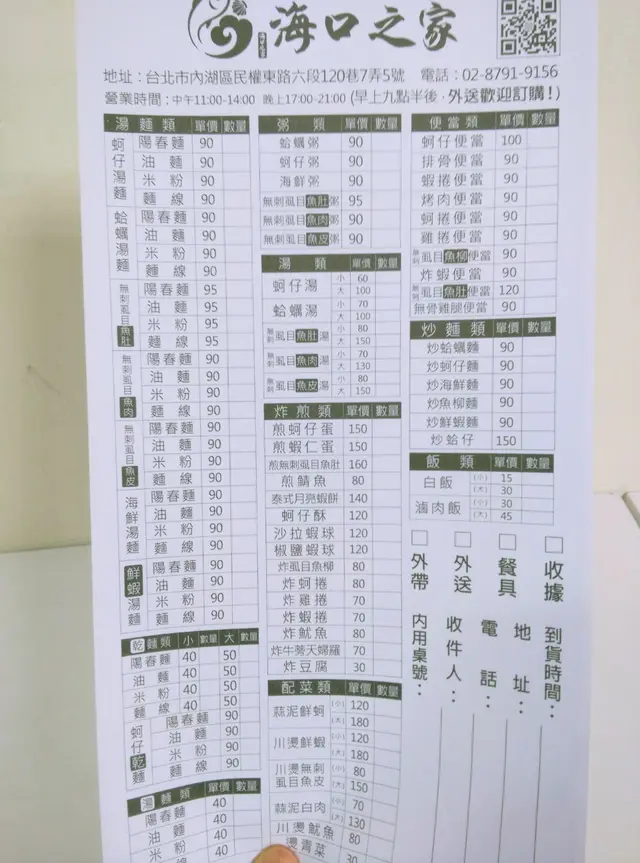 海口之家
地址：台北市內湖區民權東路六段120巷7弄5號　電話：02-8791-9156
營業時間：中午11:00-14:00 晚上17:00-21:00 (早上九點半後，外送歡迎訂購！)
湯麵類 單價 數量
蚵仔湯麵
陽春麵 90
油麵 90
米粉 90
麵線 90
蛤蠣湯麵
陽春麵 90
油麵 90
米粉 90
麵線 90
無刺虱目魚肚
陽春麵 95
油麵 95
米粉 95
麵線 95
無刺虱目魚肉
陽春麵 90
油麵 90
米粉 90
麵線 90
無刺虱目魚皮
陽春麵 90
油麵 90
米粉 90
麵線 90
海鮮湯麵
陽春麵 90
油麵 90
米粉 90
麵線 90
鮮蝦湯麵
陽春麵 90
油麵 90
米粉 90
麵線 90
乾麵類 小 數量 大 數量
陽春麵 40 50
油麵 40 50
米粉 40 50
麵線 40 50
蚵仔乾麵
陽春麵 90
油麵 90
米粉 90
麵線 90
湯麵類 單價 數量
陽春麵 40
油麵 40
米粉 40
粥類 單價 數量
蛤蠣粥 90
蚵仔粥 90
海鮮粥 90
無刺虱目魚肚粥 95
無刺虱目魚肉粥 90
無刺虱目魚皮粥 90
湯類 單價 數量
蚵仔湯 小 60
大 100
蛤蠣湯 小 70
大 100
無刺虱目魚肚湯 小 80
大 150
無刺虱目魚肉湯 小 70
大 130
無刺虱目魚皮湯 小 80
大 150
炸煎類 單價 數量
煎蚵仔蛋 150
煎蝦仁蛋 150
煎無刺虱目魚肚 160
煎鯖魚 80
泰式月亮蝦餅 140
蚵仔酥 120
沙拉蝦球 120
椒鹽蝦球 120
炸虱目魚柳 80
炸蚵捲 80
炸雞捲 70
炸蝦捲 70
炸魷魚 80
炸牛蒡天婦羅 70
炸豆腐 30
配菜類 單價 數量
蒜泥鮮蚵 (小) 120
(大) 180
川燙鮮蝦 (小) 120
(大) 180
川燙無刺虱目魚皮 (小) 80
(大) 150
蒜泥白肉 (小) 70
(大) 130
川燙魷魚 80
燙青菜 30
便當類 單價 數量
蚵仔便當 100
排骨便當 90
蝦捲便當 90
烤肉便當 90
蚵捲便當 90
雞捲便當 90
無刺虱目魚柳便當 90
炸蝦便當 90
無刺虱目魚肚便當 120
無骨雞腿便當 90
炒麵類 單價 數量
炒蛤蠣麵 90
炒蚵仔麵 90
炒海鮮麵 90
炒魚柳麵 90
炒鮮蝦麵 90
炒蛤仔 150
飯類 單價 數量
白飯 (小) 15
(大) 30
滷肉飯 (小) 30
(大) 45
□收據
□餐具
□外送
□外帶
到貨時間：
地址：
電話：
收件人：
內用桌號：